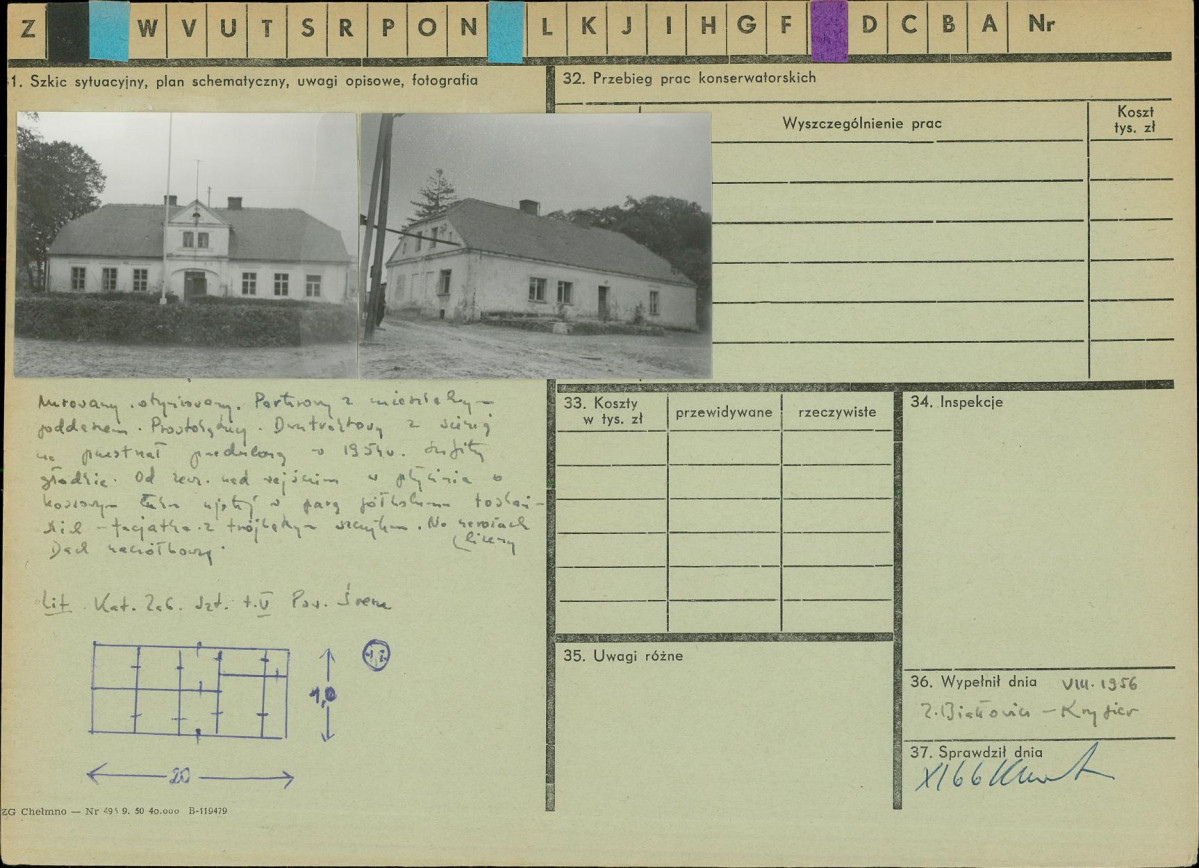 Z W V U T S R P O N L K J I H G F D C B A Nr
1. Szkic sytuacyjny, plan schematyczny, uwagi opisowe, fotografia
32. Przebieg prac konserwatorskich
Wyszczególnienie prac
Koszt
tys. zł
Murowany, otynkowany. Parterowy z mieszkalnym
poddaszem. Prostokątny. Dwutraktowy z sienią
na przestrzał przedzieloną w 1954 r. Sufity
gładkie. Od zewn. nad wejściem w płycinie o
koszowym łuku ujętej w parę półkolumn toskań-
skich - facjatka z trójkątnym szczytem. Na
Dach naczółkowy.
Lit. Kat. Zab. Szt. t. V Pow. Śrem
20
33. Koszty
w tys. zł
przewidywane
rzeczywiste
34. Inspekcje
35. Uwagi różne
36. Wypełnił dnia VIII. 1956
37. Sprawdził dnia
XI 66
ZG Chełmno — Nr 9. 50 40.000 B-119479